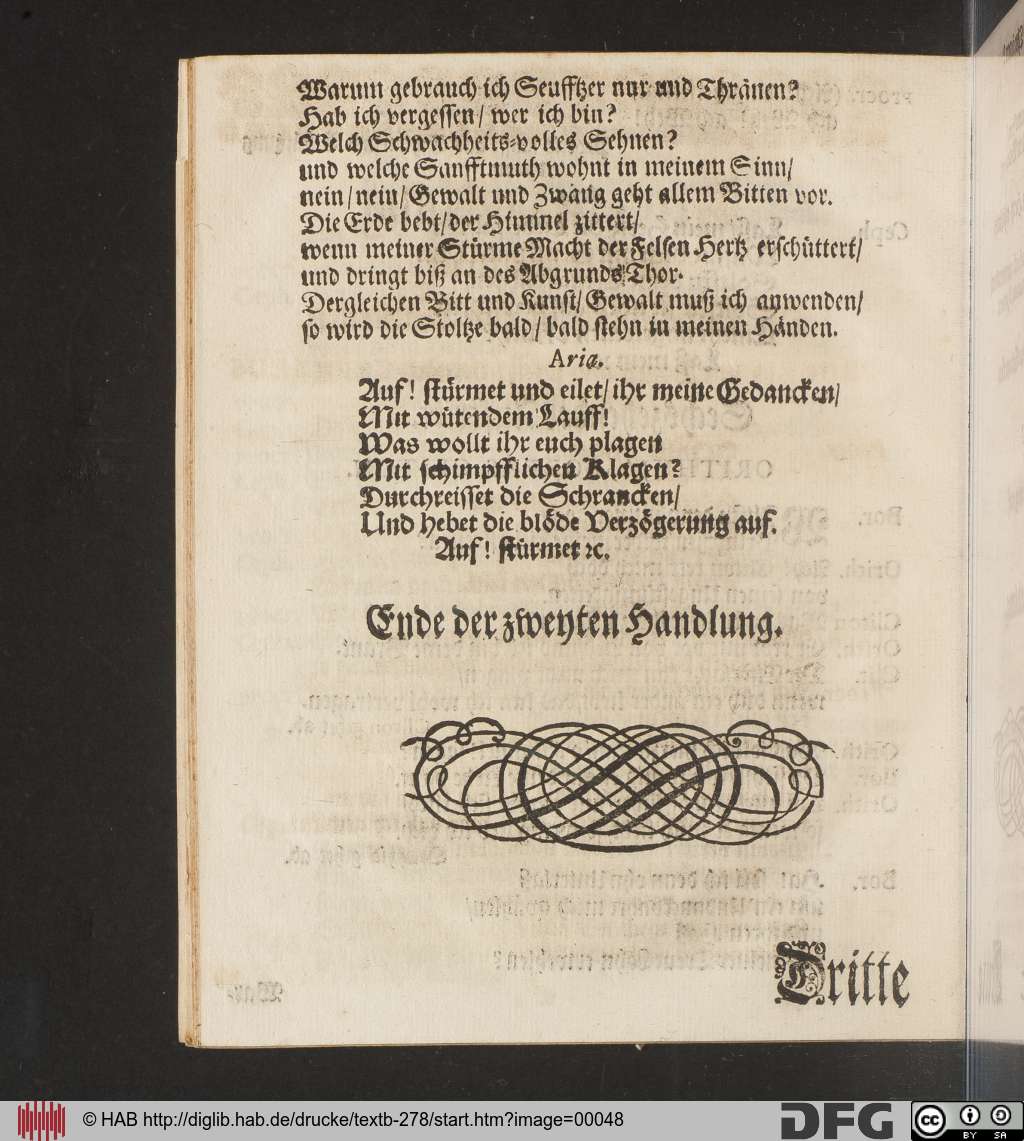 Warum gebrauch ich Seufftzer nur und Thränen?
Hab ich vergessen/ wer ich bin?
Welch Schwachheits-volles Sehnen?
und welche Sanfftmuth wohnt in meinem Sinn/
nein/ nein/ Gewalt und Zwang geht allem Bitten vor.
Die Erde bebt/ der Himmel zittert/
wenn meiner Stürme Macht der Felsen Hertz erschüttert/
und dringt biß an des Abgrunds Thor.
Dergleichen Bitt und Kunst/ Gewalt muß ich anwenden/
so wird die Stoltze bald/ bald stehn in meinen Händen.
Aria.
Auf! stürmet und eilet/ ihr meine Gedancken/
Mit wütendem Lauff!
Was wollt ihr euch plagen
Mit schimpfflichen Klagen?
Durchreisset die Schrancken/
Und hebet die blöde Verzögerung auf.
Auf! stürmet ꝛc.
Ende der zweyten Handlung.
Dritte
© HAB http://diglib.hab.de/drucke/textb-278/start.htm?image=00048
DFG
cc BY SA